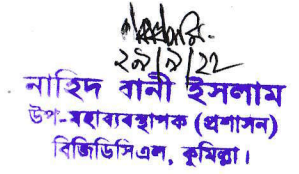 ২৯/৯/২২
নাহিদ বানী ইসলাম
উপ-মহাব্যবস্থাপক (প্রশাসন)
বিজিডিসিএল, কুমিল্লা।